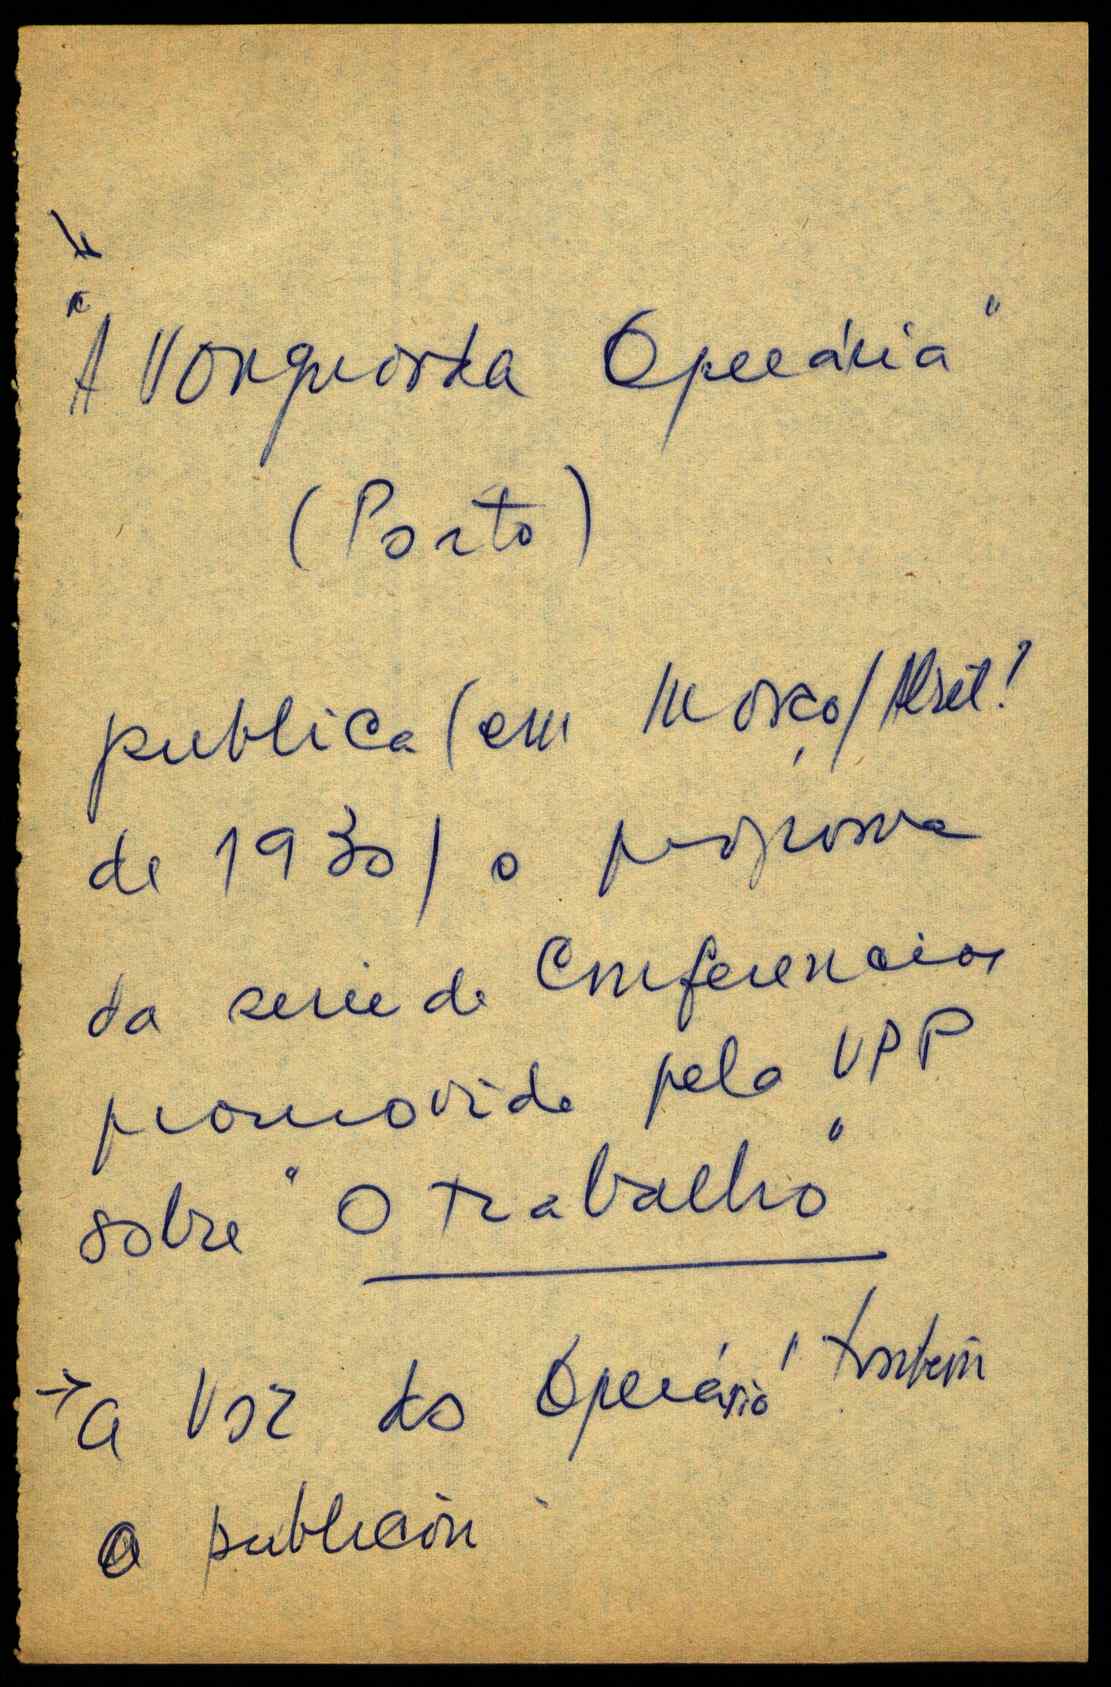 "A Vanguarda Operária"
(Porto)
publica (em Março/Abril?
de 1930) o programa
da serie de Conferencias
promovida pela UPP
sobre "O trabalho"
→ A Voz do Operário" também
o publicou